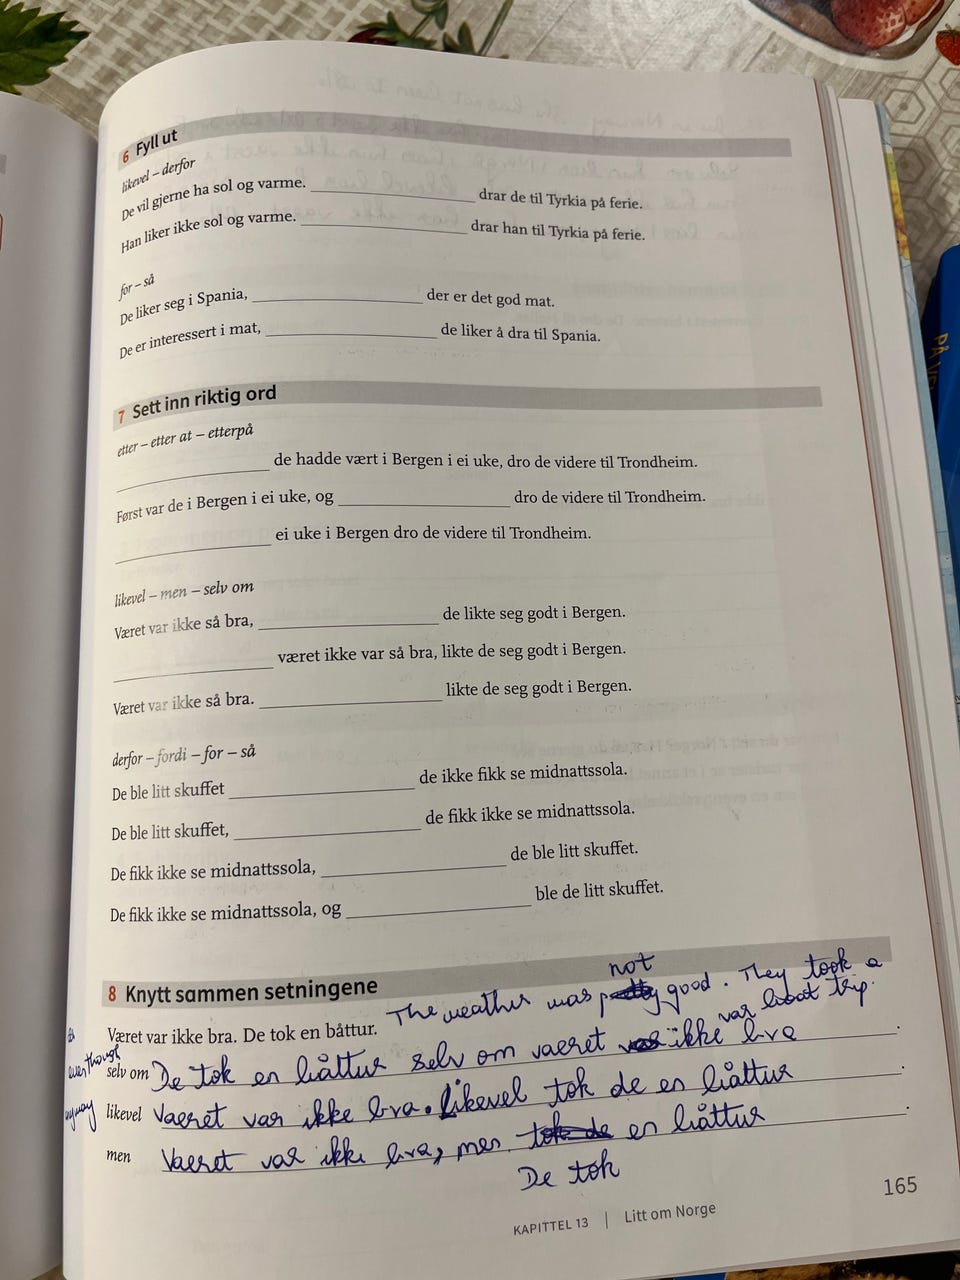 6 Fyll ut
likevel – derfor
De vil gjerne ha sol og varme. ____________ drar de til Tyrkia på ferie.
Han liker ikke sol og varme. ____________ drar han til Tyrkia på ferie.
for – så
De liker seg i Spania, ____________ der er det god mat.
De er interessert i mat, ____________ de liker å dra til Spania.
7 Sett inn riktig ord
etter – etter at – etterpå
____________ de hadde vært i Bergen i ei uke, dro de videre til Trondheim.
Først var de i Bergen i ei uke, og ____________ dro de videre til Trondheim.
____________ ei uke i Bergen dro de videre til Trondheim.
likevel – men – selv om
Været var ikke så bra, ____________ de likte seg godt i Bergen.
____________ været ikke var så bra, likte de seg godt i Bergen.
Været var ikke så bra. ____________ likte de seg godt i Bergen.
derfor – fordi – for – så
De ble litt skuffet ____________ de ikke fikk se midnattssola.
De ble litt skuffet, ____________ de fikk ikke se midnattssola.
De fikk ikke se midnattssola, ____________ de ble litt skuffet.
De fikk ikke se midnattssola, og ____________ ble de litt skuffet.
8 Knytt sammen setningene
not
Været var ikke bra. De tok en båttur. The weather was good. They took a
boat trip.
var
even though
selv om De tok en båttur selv om vaeret ikke bra.
anyway
likevel Vaeret var ikke bra. Likevel tok de en båttur.
men Vaeret var ikke bra, men tok de en båttur.
De tok
KAPITTEL 13 | Litt om Norge
165
PÅ VEI